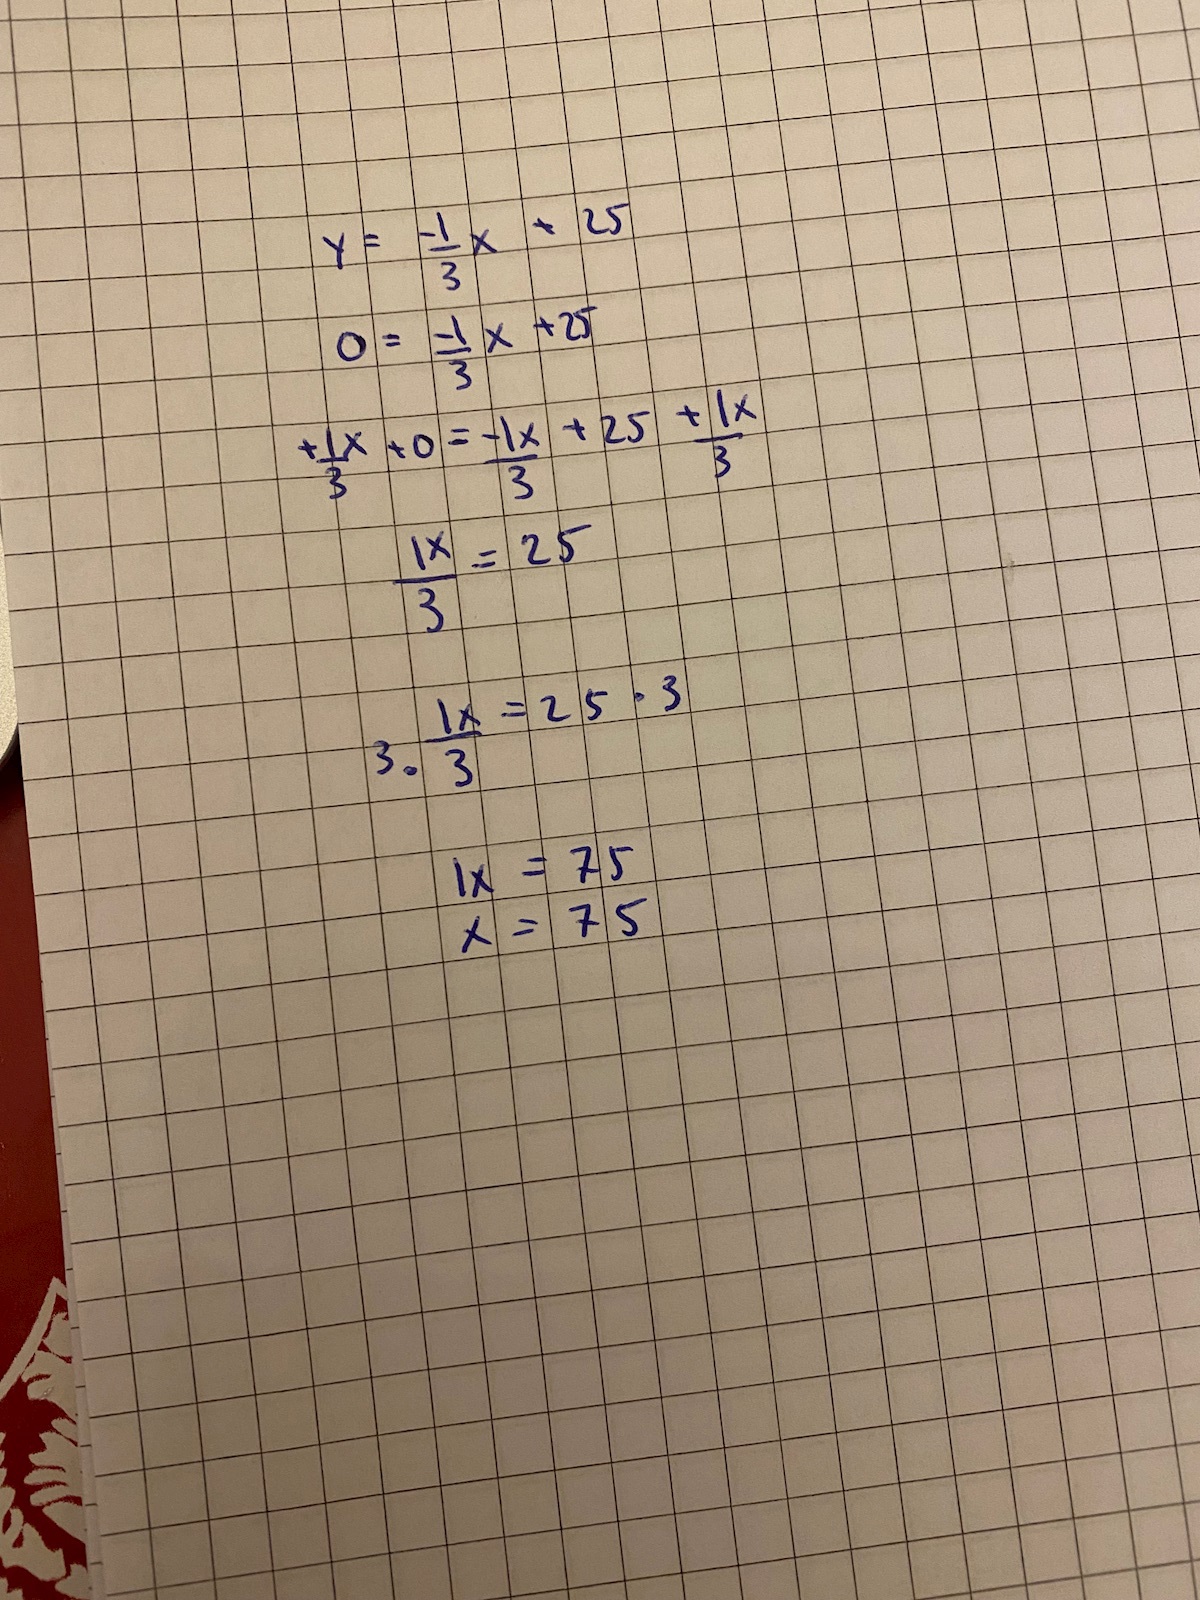 y = -1/3 x + 25
0 = -1/3 x + 25
+1x/3 + 0 = -1x/3 + 25 + 1x/3
1x/3 = 25
3 · 1x/3 = 25 · 3
1x = 75
x = 75